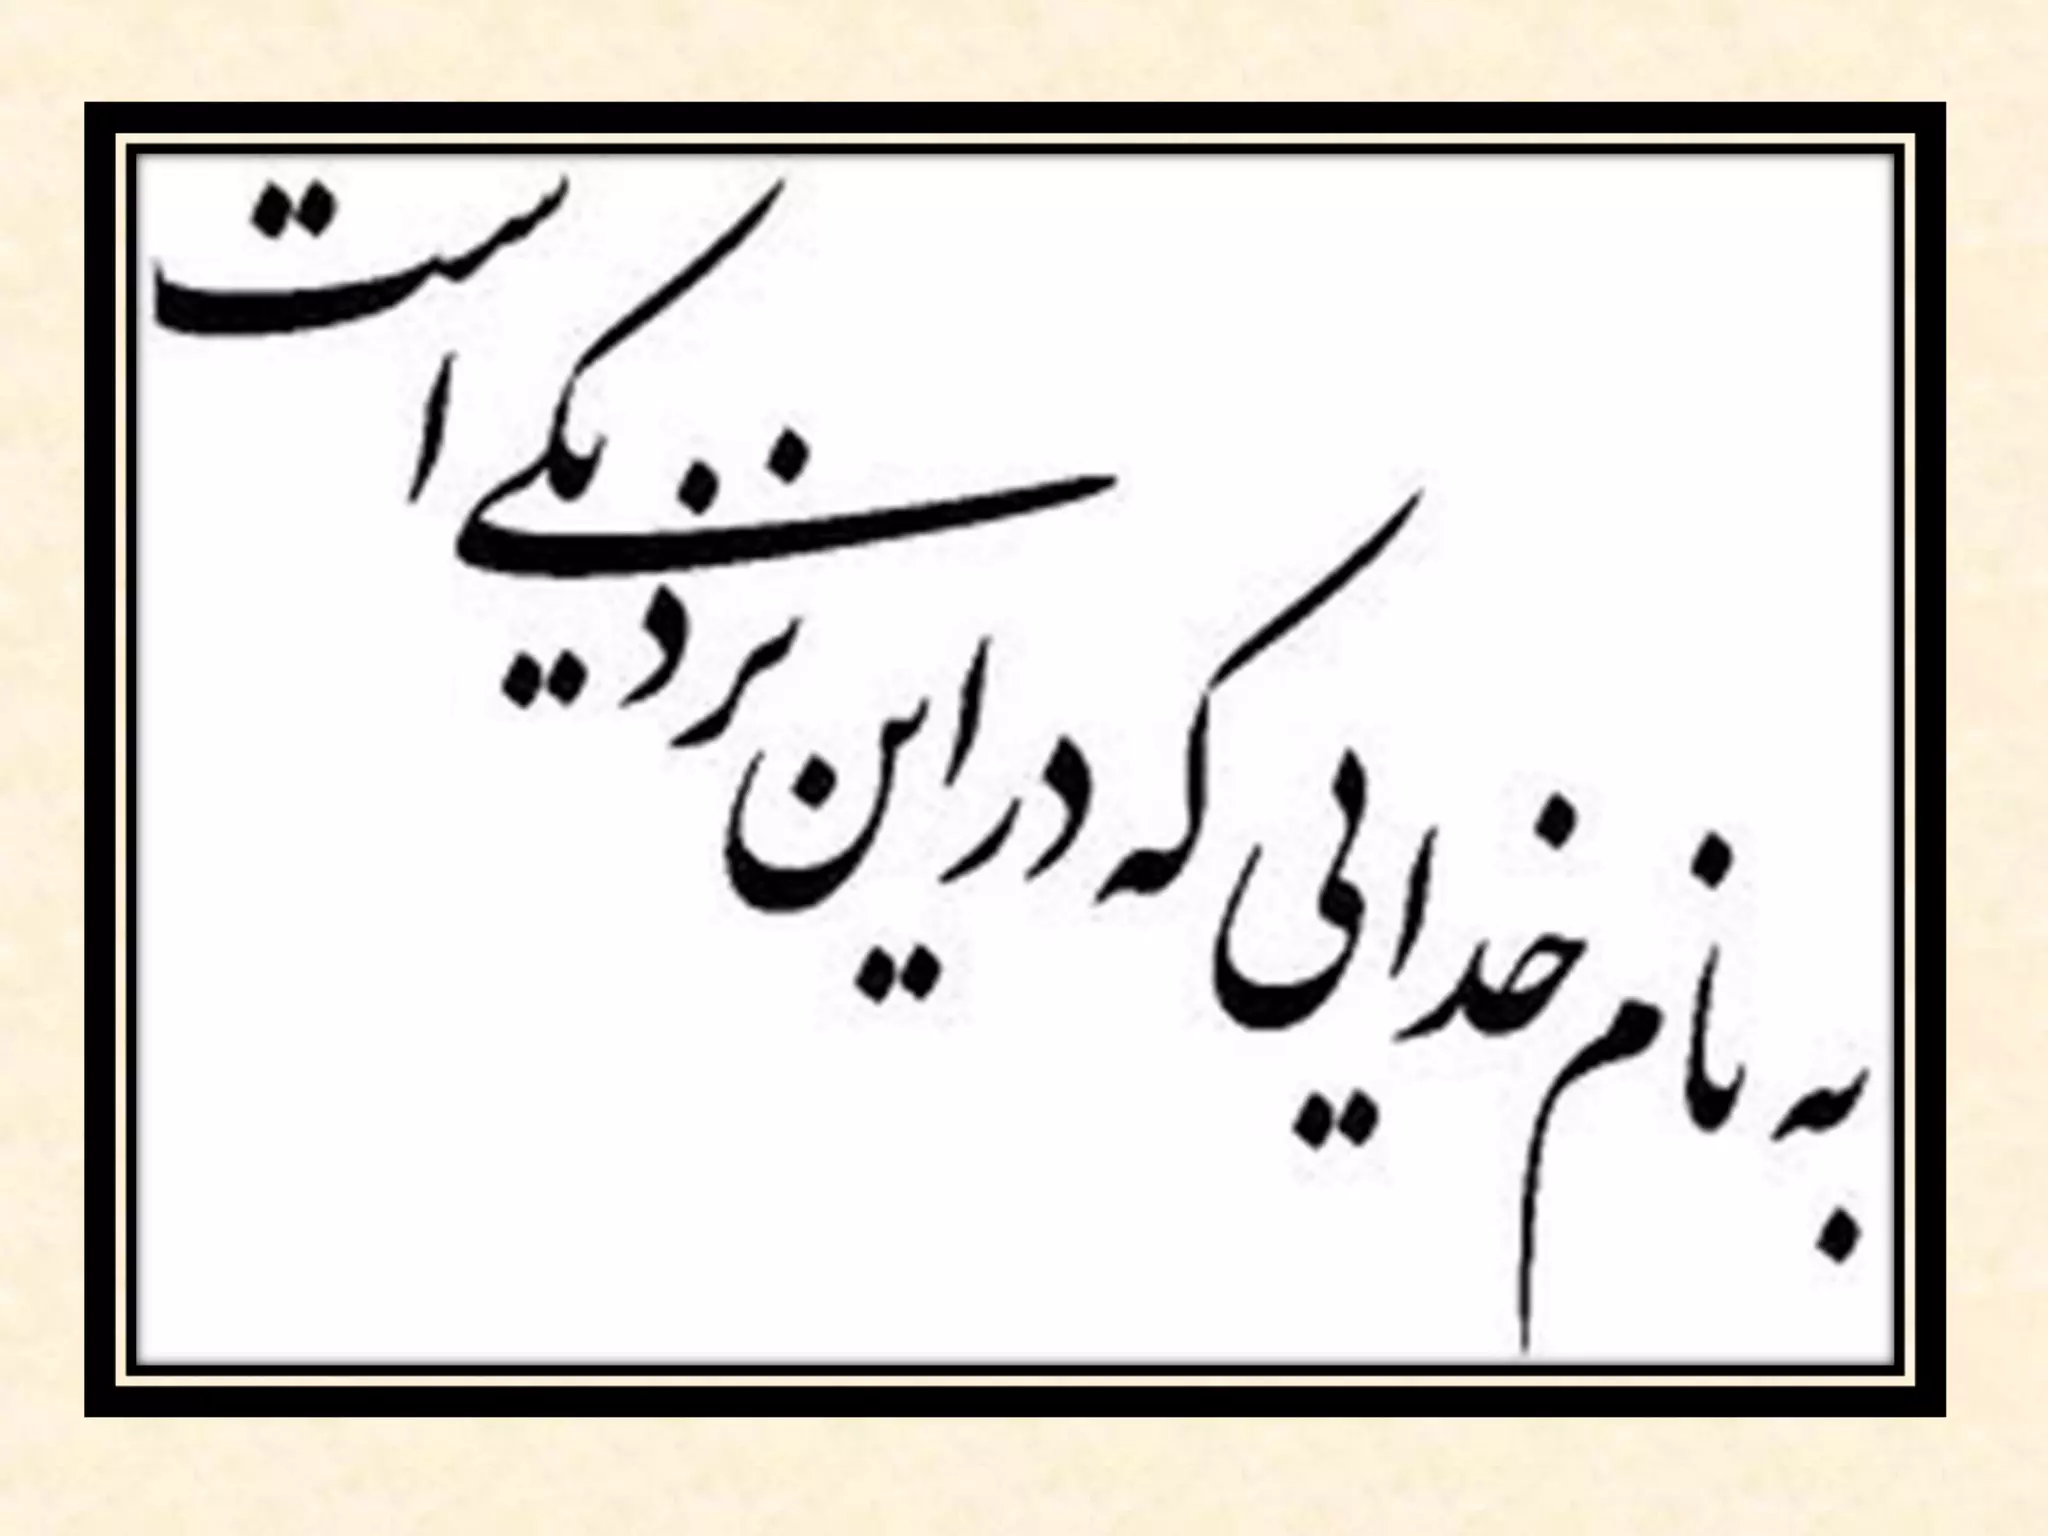 به نام خدایی که در این نزدیکی است